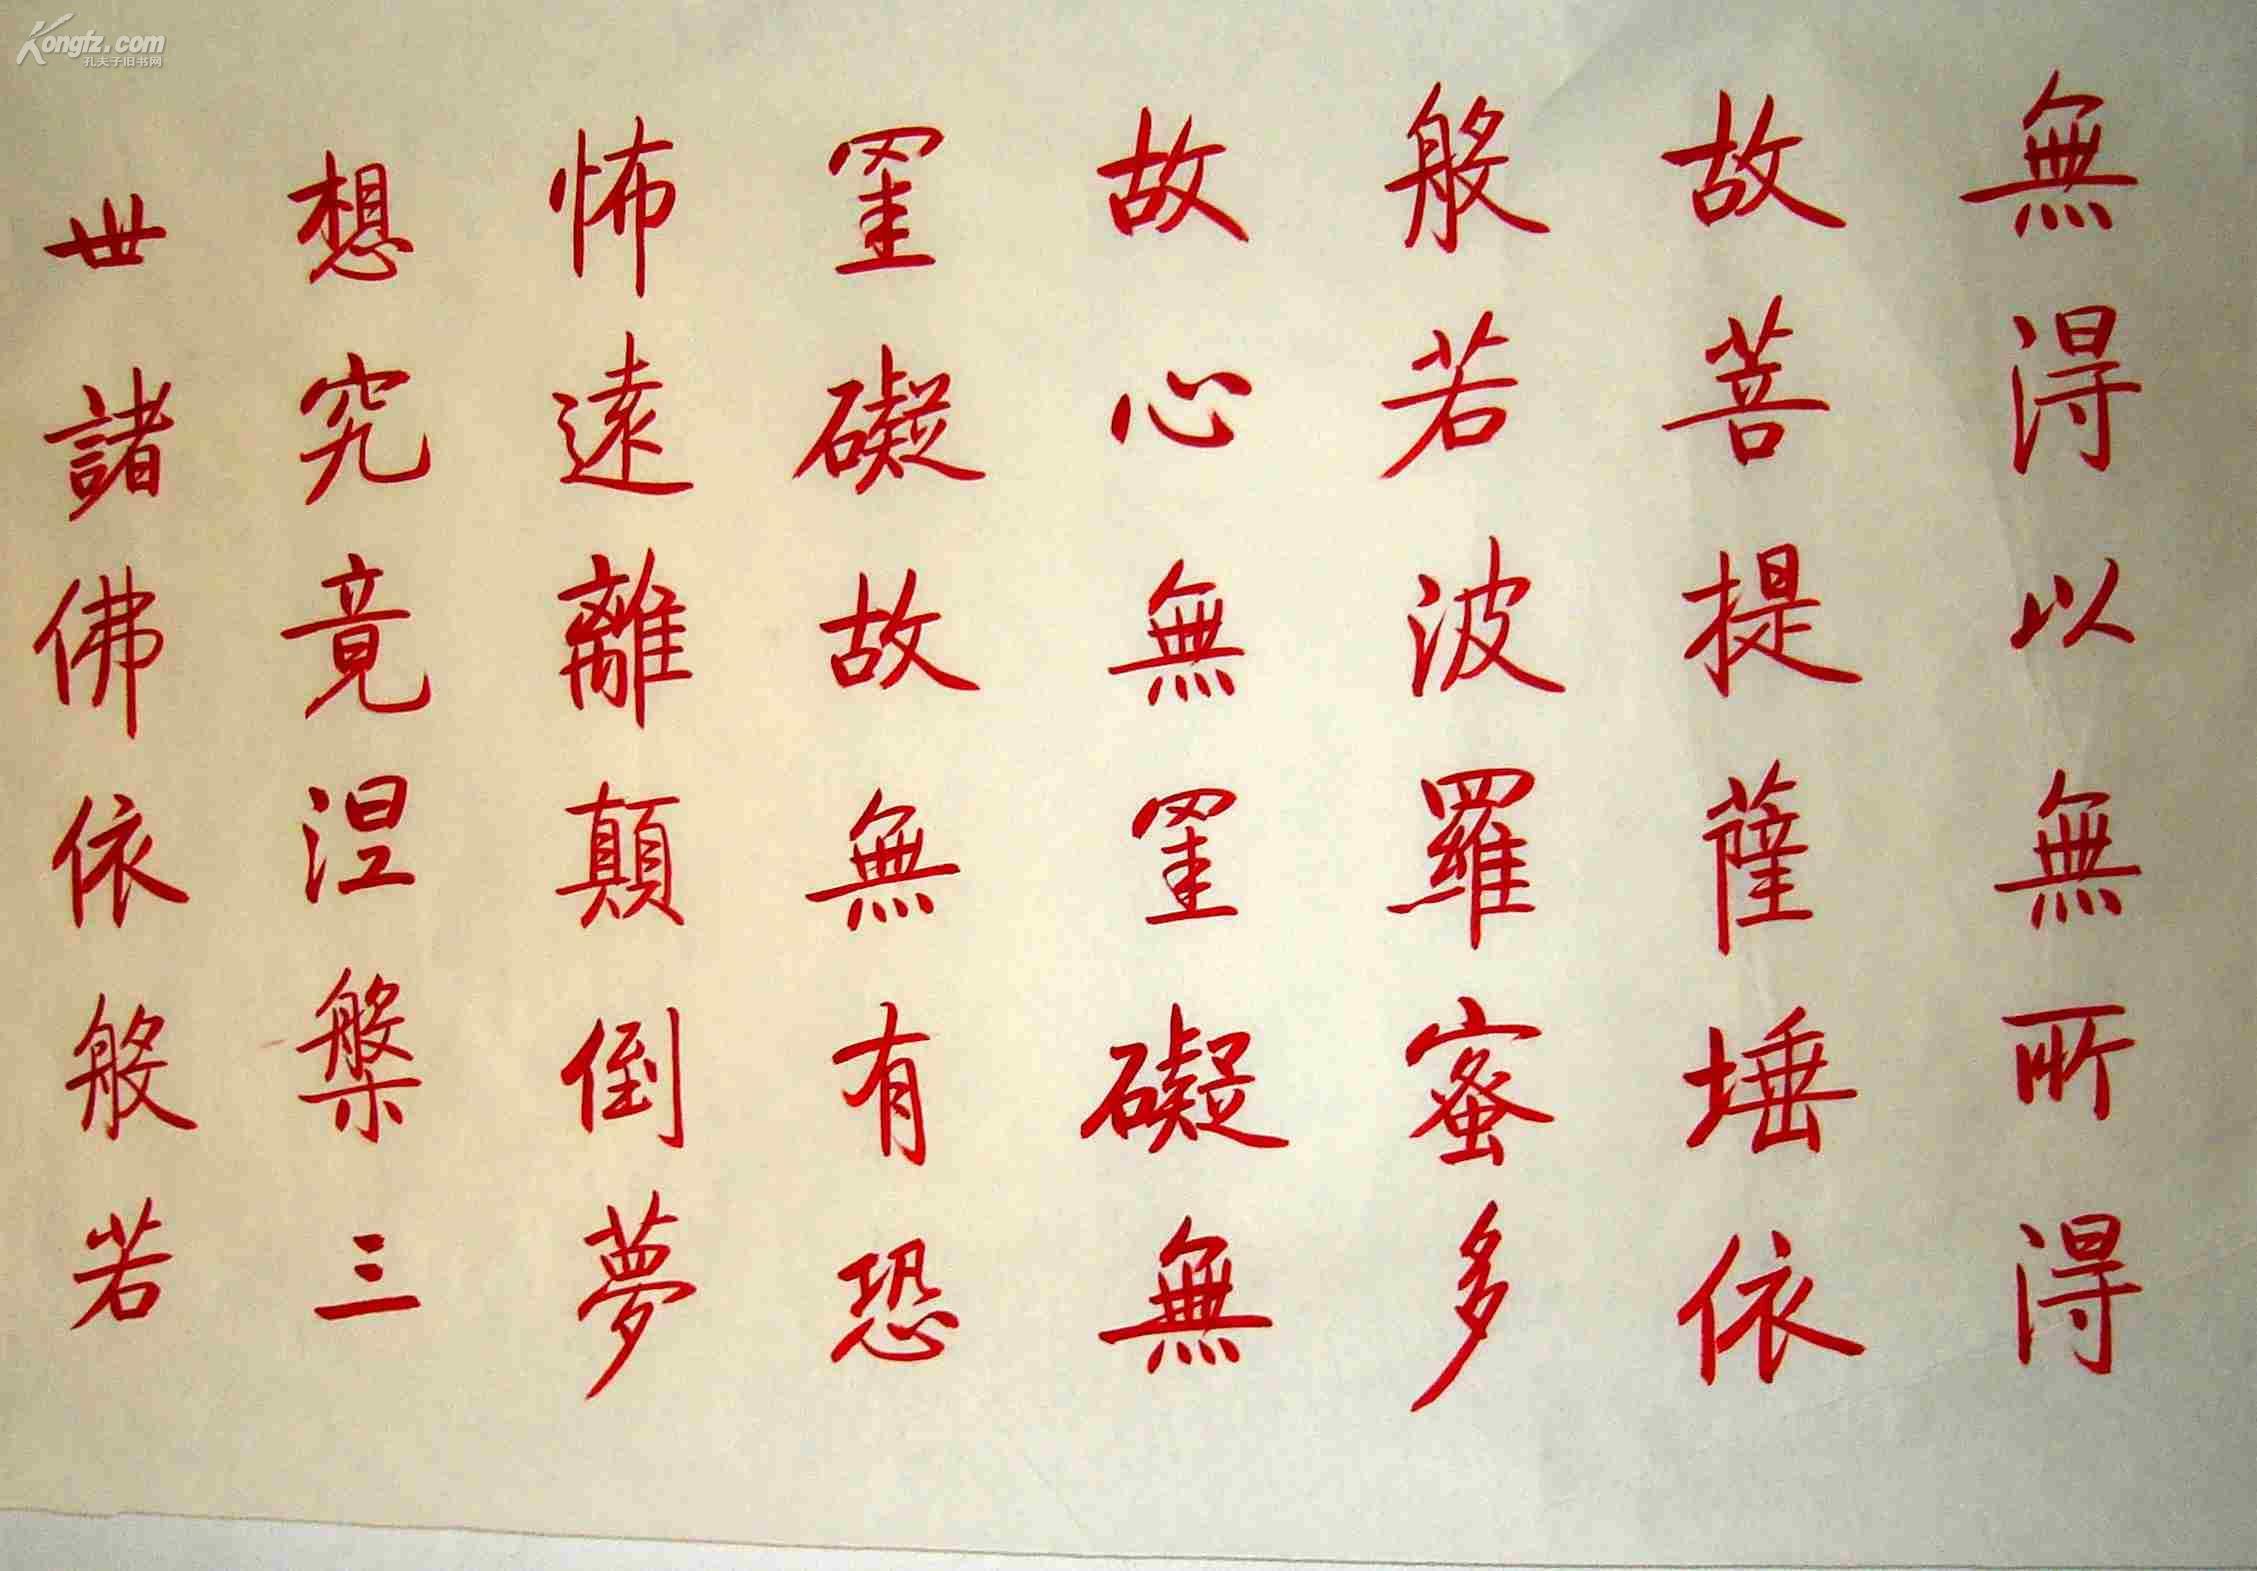 無得以無所得
故菩提薩埵依
般若波羅蜜多
故心無罣礙無
罣礙故無有恐
怖遠離顛倒夢
想究竟涅槃三
世諸佛依般若
Kongfz.com
孔夫子旧书网